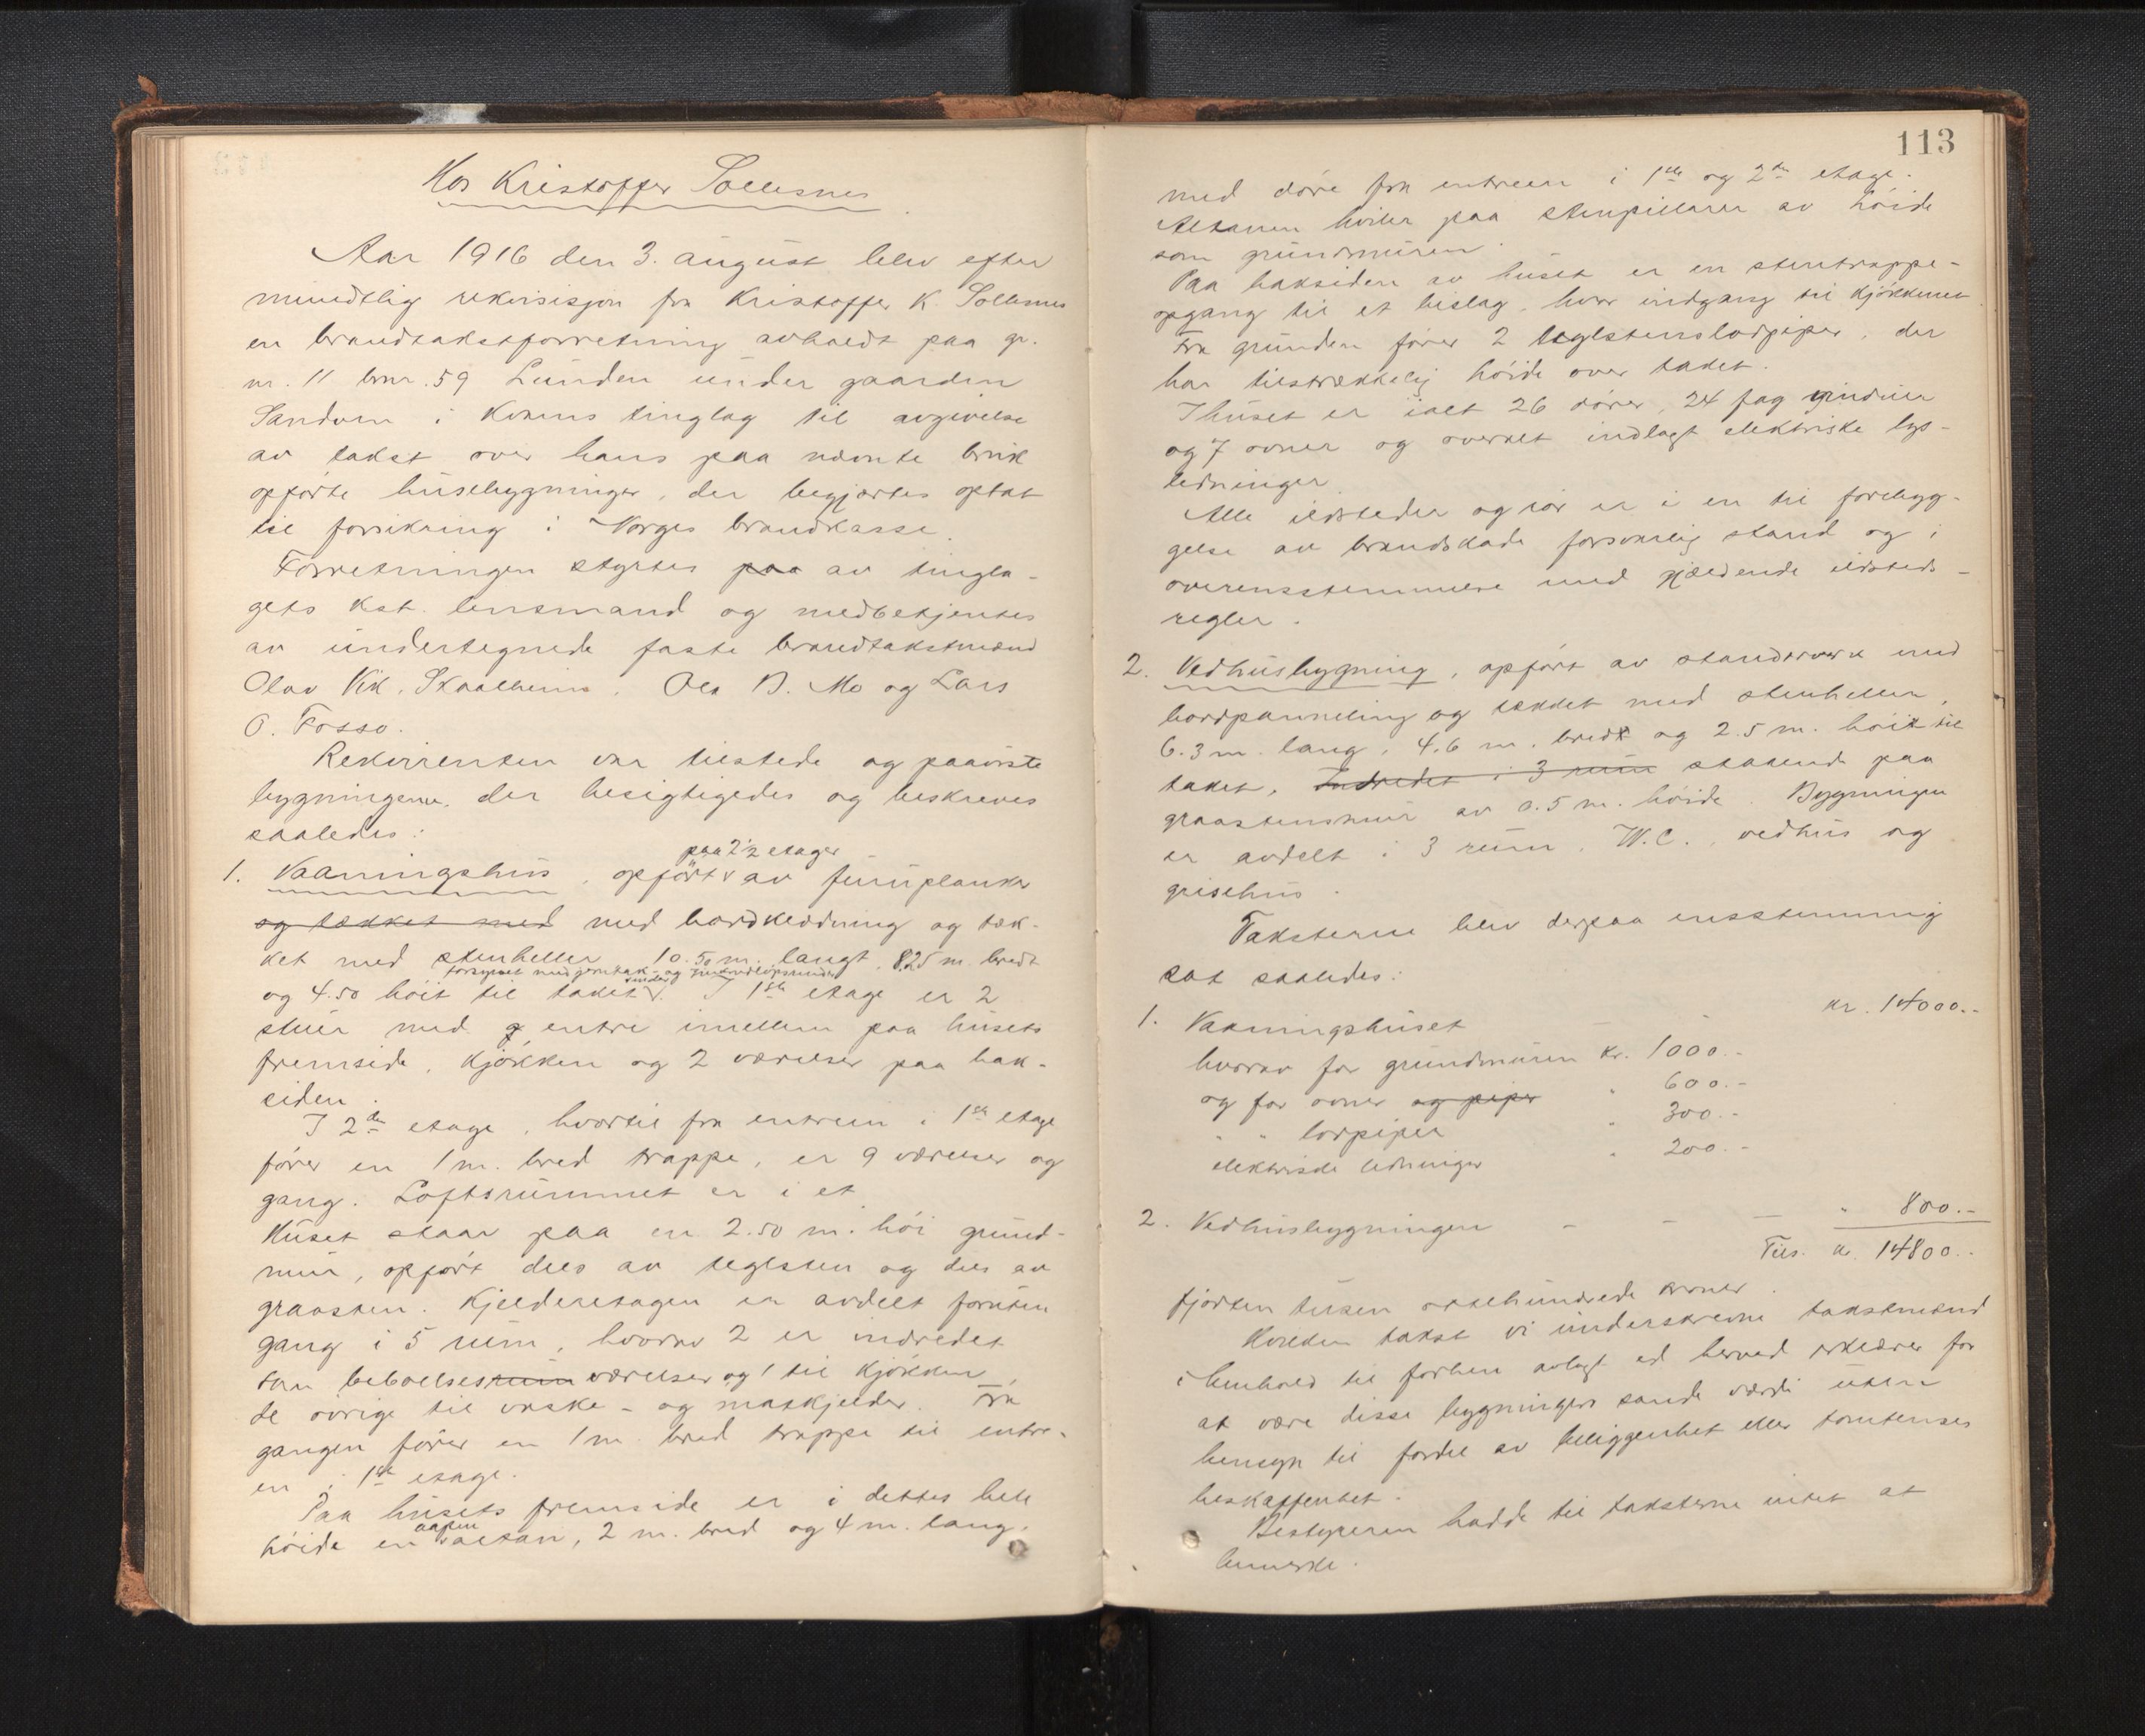 Hos Kristoffer Sollesnes
Aar 1916 den 3. august blev efter
mundtlig rekvisisjon fra Kristoffer K. Sollesnes
en brandtakstforretning avholdt paa gr.
nr. 11 brnr. 59 Lunden under gaarden
Sandven i Kvams tinglag til avgivelse
av takst over hans paa nævnte bruk
opførte husebygninger, der begjærtes optat
til forsikring i Norges brandkasse.
Forretningen styrtes paa av tingla-
gets kst. lensmand og medbetjentes
av undertegnede faste brandtakstmænd
Olav Vik, Skaalheim, Ola B. Mo og Lars
O. Fosso.
Rekvirenten var tilstede og paaviste
bygningerne, der besigtigedes og beskreves
saaledes:
paa 2½ etager
1. Vaaningshus, opført av furuplanker
og tækket med med bordklædning og tæk-
ket med stenheller 10.50 m. langt, 8.25 m. bredt
og 4.50 høit til taket. I 1ste etage er 2
stuer med entre imellem paa husets
fremside, kjøkken og 2 værelser paa bak-
siden.
I 2den etage, hvortil fra entreen i 1ste etage
fører en 1 m. bred trappe, er 9 værelser og
gang. Loftsrummet er i et
Huset staar paa en 2.50 m. høi grund-
mur, opført dels av teglsten og dels av
graasten. Kjelderetagen er avdelt foruten
gang i 5 rum, hvorav 2 er indredet
som beboelsesrum værelser og 1 til kjøkken,
de øvrige til vaske- og matkjelder. Fra
gangen fører en 1 m. bred trappe til entre-
en i 1ste etage.
Paa husets fremside er i dettes hele
høide en aapen altan, 2 m. bred og 4 m. lang,
113
med døre fra entreen i 1ste og 2den etage.
Altanen hviler paa stenpillarer av høide
som grundmuren.
Paa baksiden av huset er en stentrappe-
opgang til et bislag, hvor indgang til kjøkkenet.
Fra grunden fører 2 teglstenslorpiper, der
har tilstrækkelig høide over taket.
I huset er ialt 26 dører, 24 fag vinduer
og 7 ovner og overalt indlagt elektriske lys-
ledninger.
Alle ildsteder og rør er i en til forebyg-
gelse av brandskade forsvarlig stand og i
overensstemmelse med gjældende ildsteds-
regler.
2. Vedhusbygning, opført av standerverk med
bordpanneling og tækket med stenheller,
6.3 m. lang, 4.6 m. bredt og 2.5 m. høit til
taket, Indredet i 3 rum staaende paa
graastensmur av 0.5 m. høide. Bygningen
er avdelt i 3 rum, W.C., vedhus og
grisehus.
Taksterne blev derpaa enstemmig
sat saaledes:
1. Vaaningshuset - - kr. 14000.-
hvorav for grundmuren kr. 1000.-
og for ovner og piper " 600.-
" " lorpiper " 300.-
elektriske ledninger " 200.-
2. Vedhusbygningen - - - " 800.-
Tils. kr. 14800.-
fjorten tusen ottehundrede kroner.
Hvilken takst vi underskrevne takstmænd
i henhold til forhen avlagt ed herved erklærer for
at være disse bygningers sande værdi uten
hensyn til fordel av beliggenhet eller tomtenes
beskaffenhet.
Bestyreren hadde til taksterne intet at
bemerke.